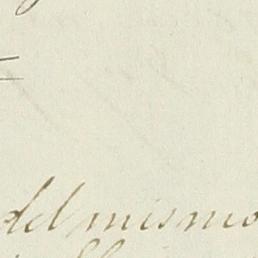 del mismo